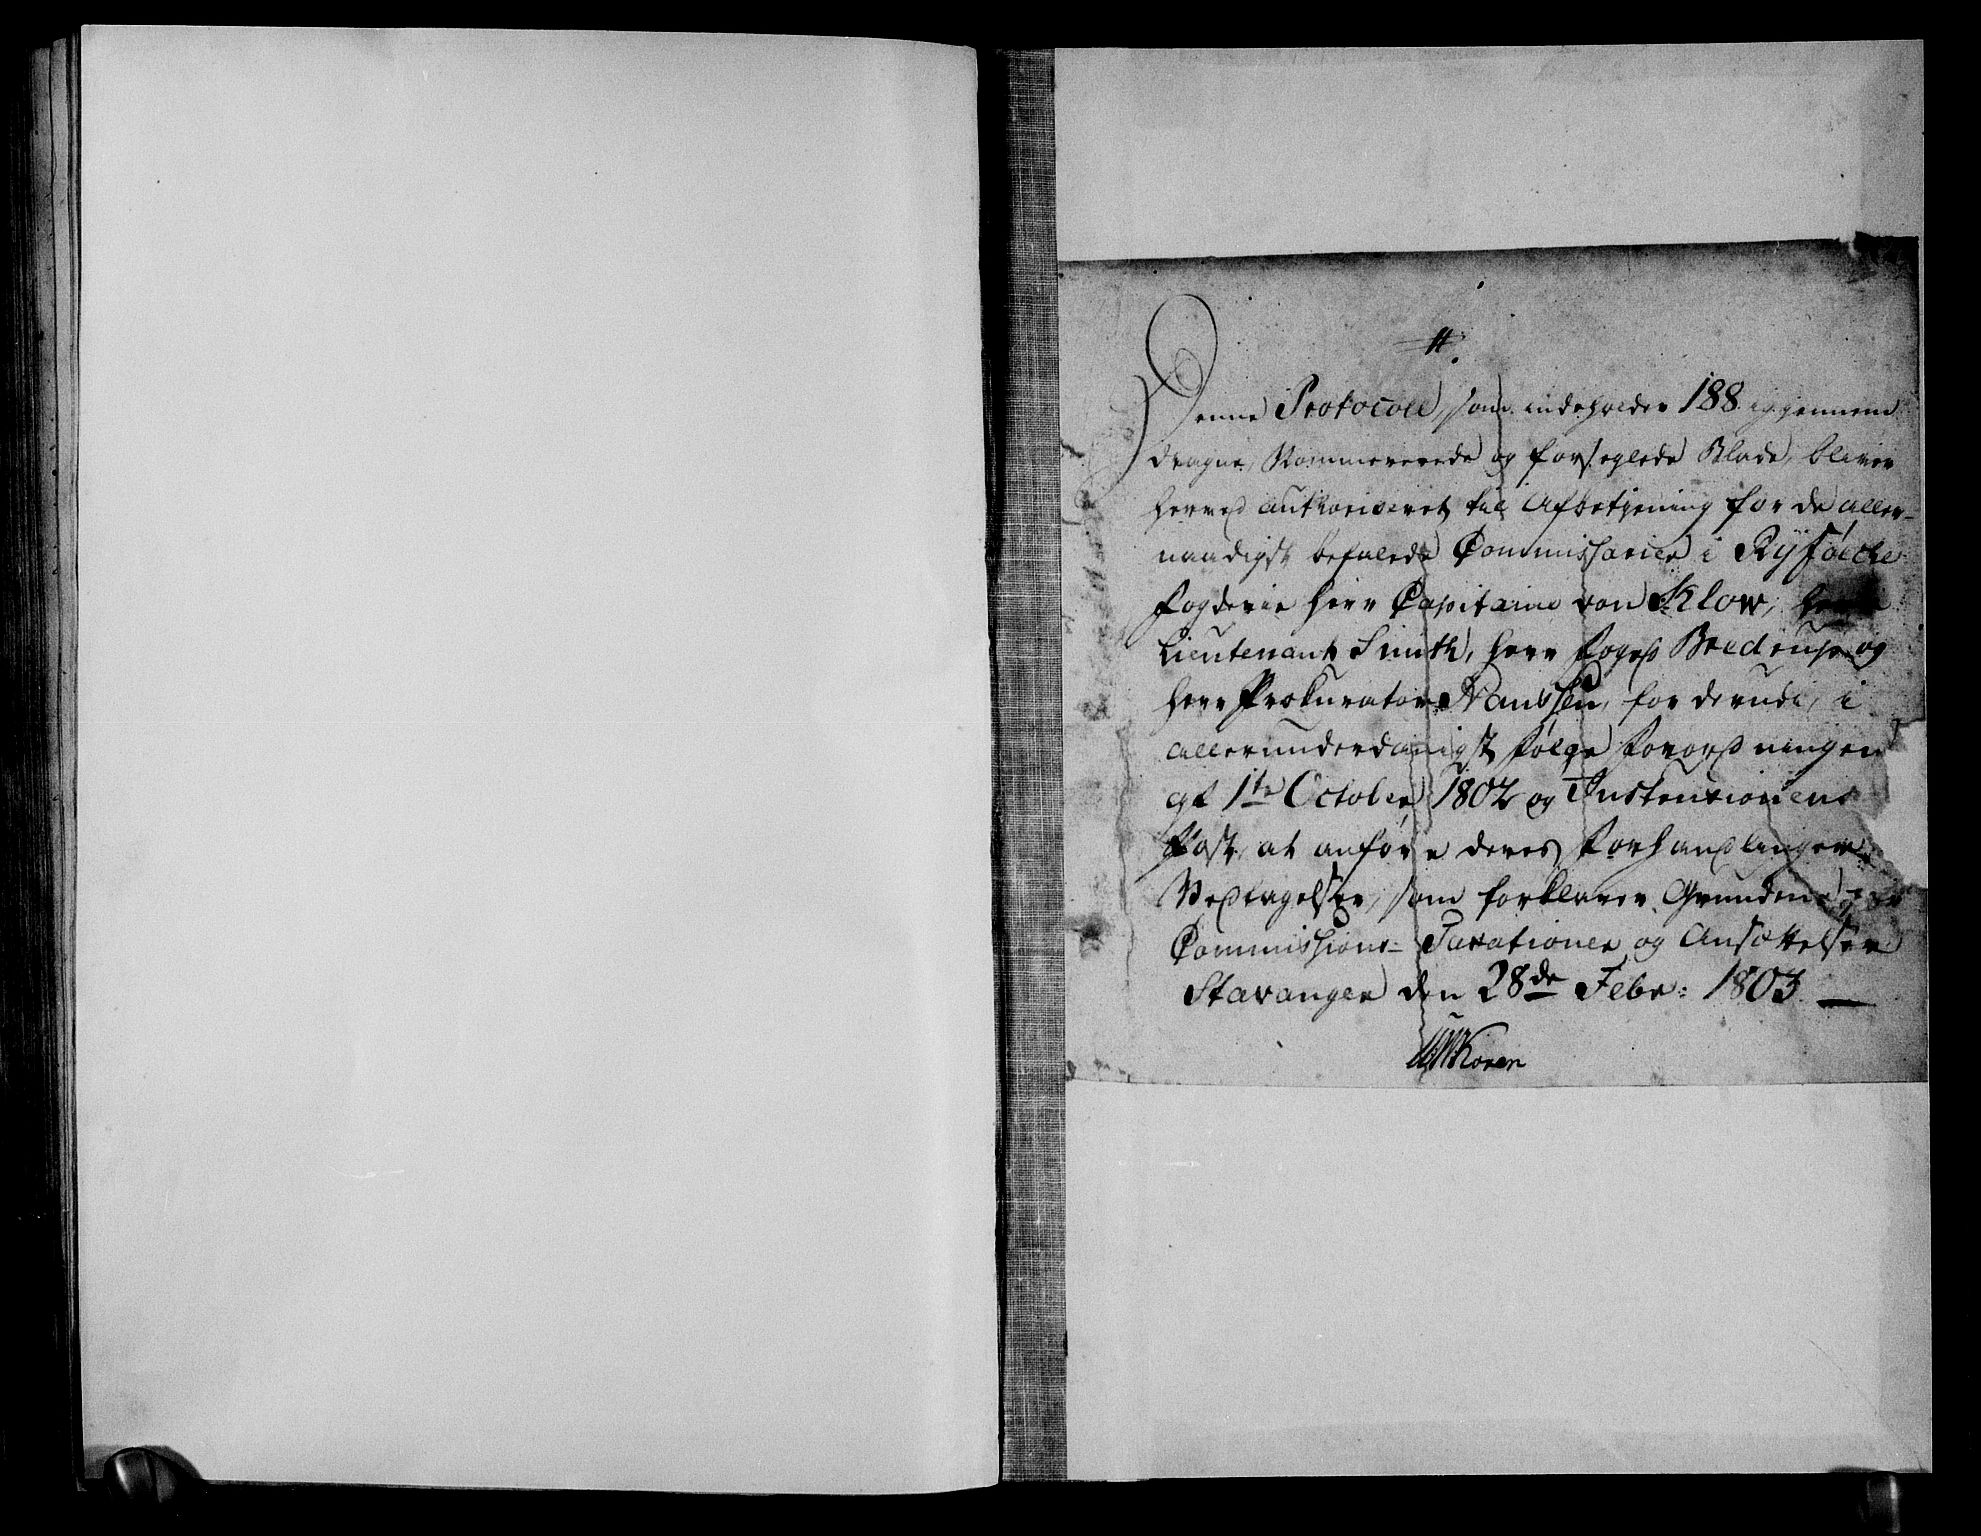 Denne Protocoll, som indeholder 188 igjennem
dragne, Nommererede og forseglede Blade, bliver
herved authoriseret til Afbetjening for de aller-
naadigst befalede Commissarier i Ryfølche
Fogderie Herr Capitaine von Klow, Herr
Lieutenant Smith, Herr Foged Bredrup og
Herr Prokurator Nanssen, for derudi, i
allerunderdanigst Følge Forordningen
af 1te October 1802 og Instruxionens
Post, at anføre deres Forhandlinger,
Vedtagelser, som forklarer Grunden
Commissions- Taxationer og Ansættelser
Stavanger den 28de Febr: 1803
Koren